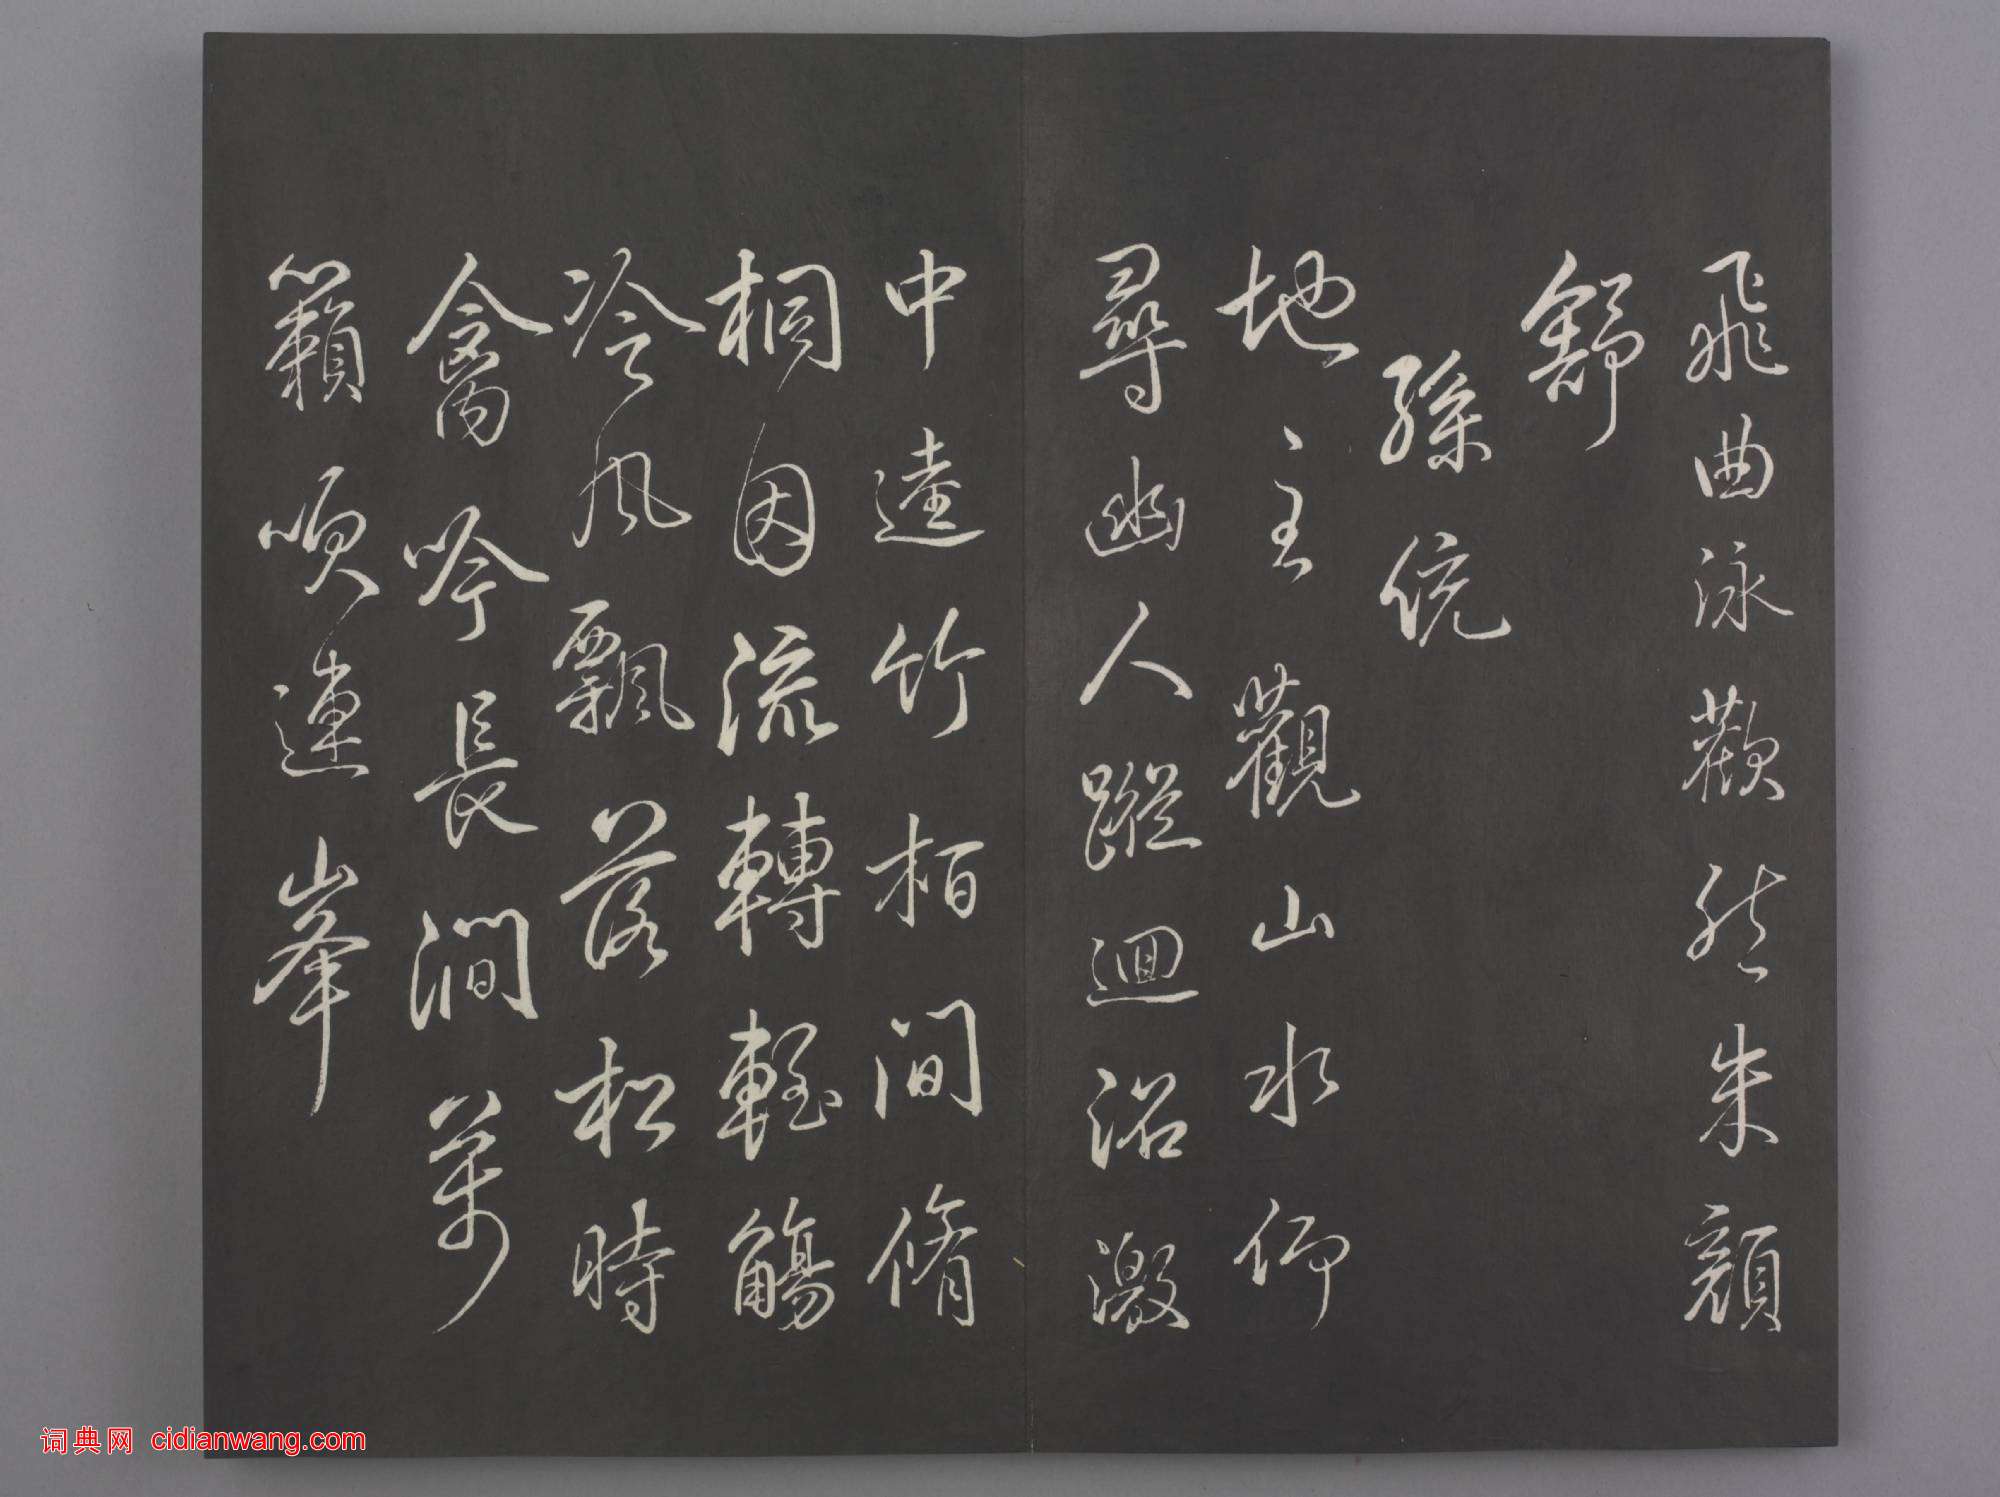 飛曲泳歡然朱顏
舒
孫統
地主觀山水仰
尋幽人蹤迴沼激
中逵竹柏間脩
桐因流轉輕觴
冷風飄落松時
禽吟長澗萬
籟吹連峯
词典网 cidianwang.com